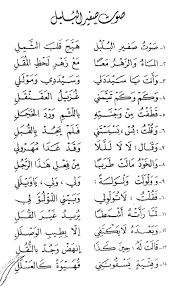 صوت صفير البلبل
١ـ صَوْتُ صَفِيرِ الْبُلْبُلِ هَيَّجَ قَلْبَ الثَّمِلِ
٢ـ الْمَاءُ وَالزَّهْرُ مَعًا مَعَ زَهْرِ لَحْظِ الْمُقَلِ
٣ـ وَأَنْتَ يَا سَيِّدَ لِي وَسَيِّدِي وَمَوْلَى لِي
٤ـ وَكَمْ وَكَمْ تَيَّمَنِي غُزَيِّلٌ عَقَنْقَلِ
٥ـ قَطَّفْتُ مِنْ وَجْنَتِهِ بِاللَّثْمِ وَرْدَ الْخَجَلِ
٦ـ وَقَالَ: لَا لَا لَلَا وَقَدْ غَدَا مُهَرْوِلِ
وَالْخُودُ مَالَتْ طَرَبًا مِنْ فِعْلِ هَذَا الرَّجُلِ
وَوَلْوَلَتْ وَلْوَلَةً: وَلِي، وَلِي، يَا وَيْلَ لِي
فَقُلْتُ: لَا تُوَلْوِلِي وَبَيِّنِي اللُّؤْلُؤَ لِي
لَمَّا رَأَتْهُ أَشْمَطَا يُرِيدُ غَيْرَ الْقُبَلِ
وَبَعْدَهُ لَا يَكْتَفِي إِلَّا بِطِيبِ الْوَصْلِ
قَالَتْ لَهُ: حِينَ كَذَا اِنْهَضْ وَجُدْ بِالنُّقَلِ
وَفِتْيَةٍ يَسْقُونَنِي قُهَيْوَةً كَالْعَسَلِ